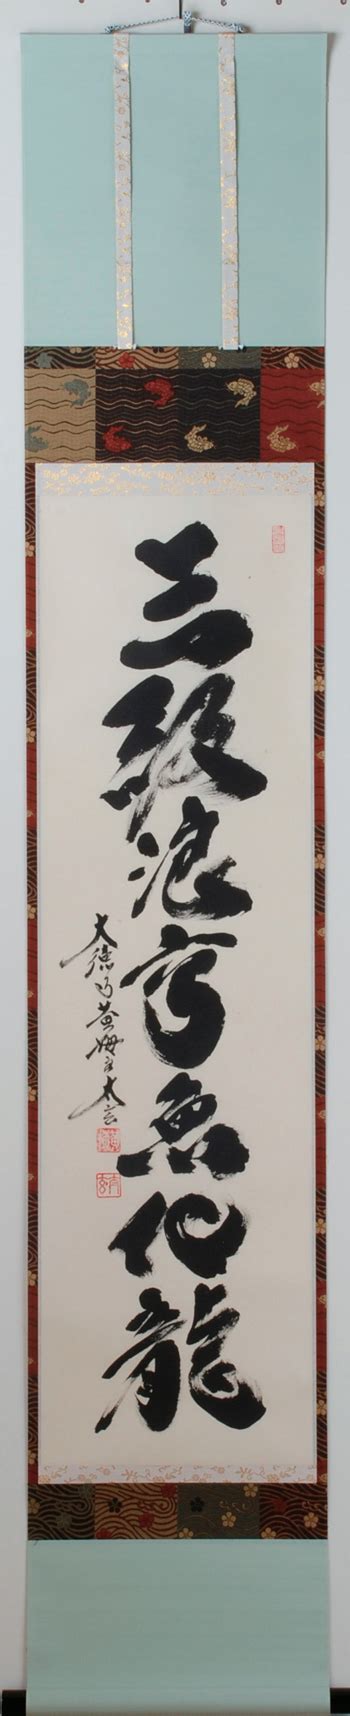 三級浪高魚化龍
大徳寺黄梅主太玄